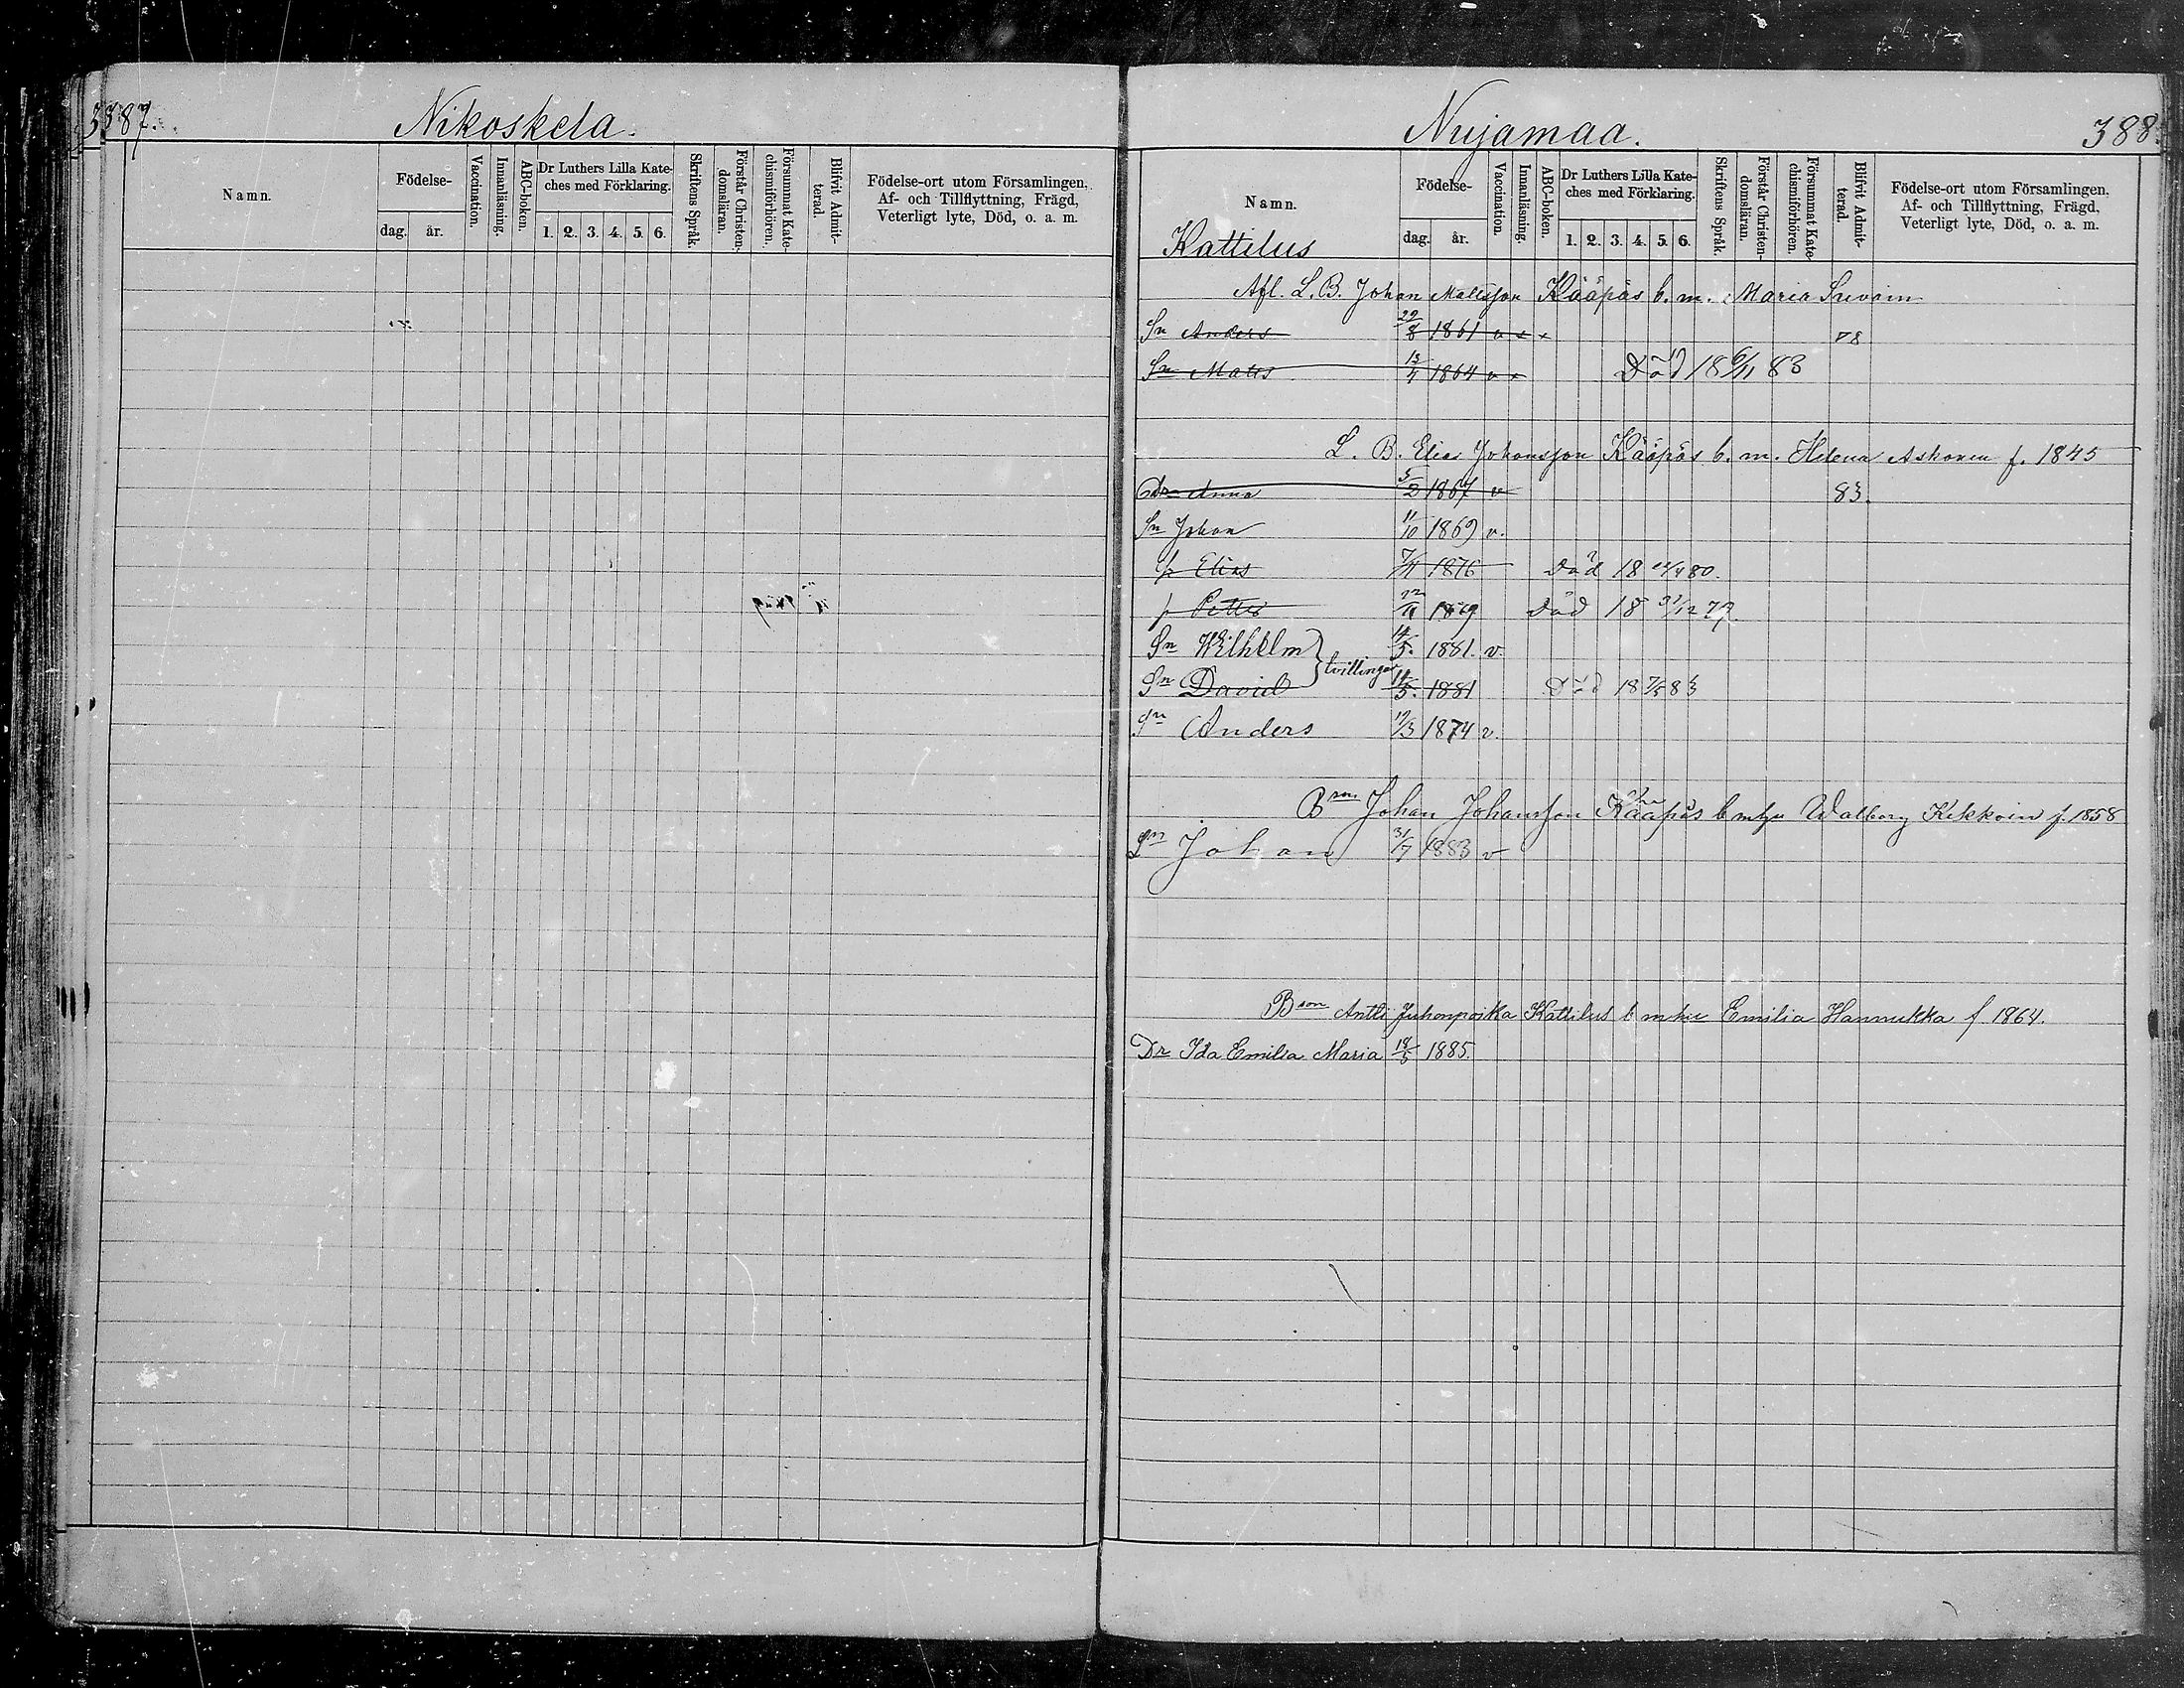 387.
Nikoskela.
Namn.
Födelse-
dag. år.
Vaccination.
Innanläsning.
ABC-boken.
Dr Luthers Lilla Kate-
ches med Förklaring.
1. 2. 3. 4. 5. 6.
Skriftens Språk.
Förstår Christen-
domsläran.
Försummat Kate-
chismiförhören.
Blifvit Admit-
terad.
Födelse-ort utom Församlingen,
Af- och Tillflyttning, Frägd,
Veterligt lyte, Död, o. a. m.
Nujamaa.
388.
Namn.
Kattilus
Födelse-
dag. år.
Vaccination.
Innanläsning.
ABC-boken.
Dr Luthers Lilla Kate-
ches med Förklaring.
1. 2. 3. 4. 5. 6.
Skriftens Språk.
Förstår Christen-
domsläran.
Försummat Kate-
chismiförhören.
Blifvit Admit-
terad.
Födelse-ort utom Församlingen,
Af- och Tillflyttning, Frägd,
Veterligt lyte, Död, o. a. m.
Afl. L. B. Johan Mattsson Kääpäs b. m. Maria
Sn Anders 29/8 1861 v x x 78
Sn Matts 1864 v x Död 18 6/11 83
L. B. Elias Johansson Kääpäs b. m. Helena Askonen f. 1845
Dr Anna 5/2 1867 v 83.
Sn Johan 11/10 1869 v.
Elias 7/11 1876 Död 18 80.
Petter 22/11 1879 Död 18 31/12 79.
Sn Wilhelm } tvillingar 14/5. 1881. v.
Sn David 14/5. 1881 Död 18 7/5 83
Sn Anders 17/3 1874 v.
Bson Johan Johansson Kääpäs b mhu Walborg Kekkoin f. 1858
Sn Johan 31/7 1883 v
Bson Antti Juhonpoika Kattilus b mhu Emilia Hannukka f. 1864.
Dr Ida Emilia Maria 18/5 1885.